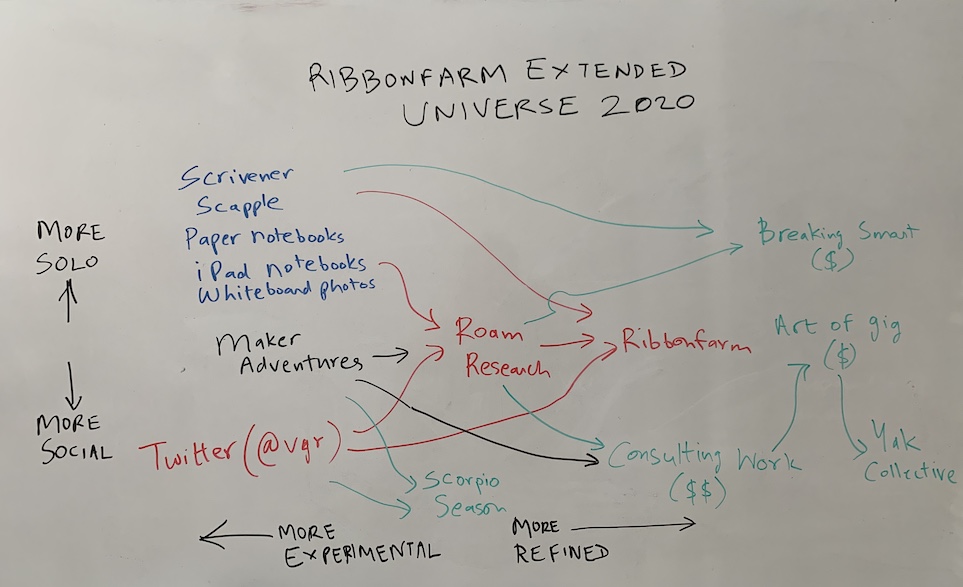 RIBBONFARM EXTENDED
UNIVERSE 2020
Scrivener
Scapple
Paper notebooks
iPad notebooks
Whiteboard photos
MORE
SOLO
Maker
Adventures
MORE
SOCIAL
Twitter (@vgr)
Roam
Research
Ribbonfarm
Breaking Smart
($)
Art of gig
($)
Consulting Work
($$)
Yak
Collective
Scorpio
Season
MORE
EXPERIMENTAL
MORE
REFINED